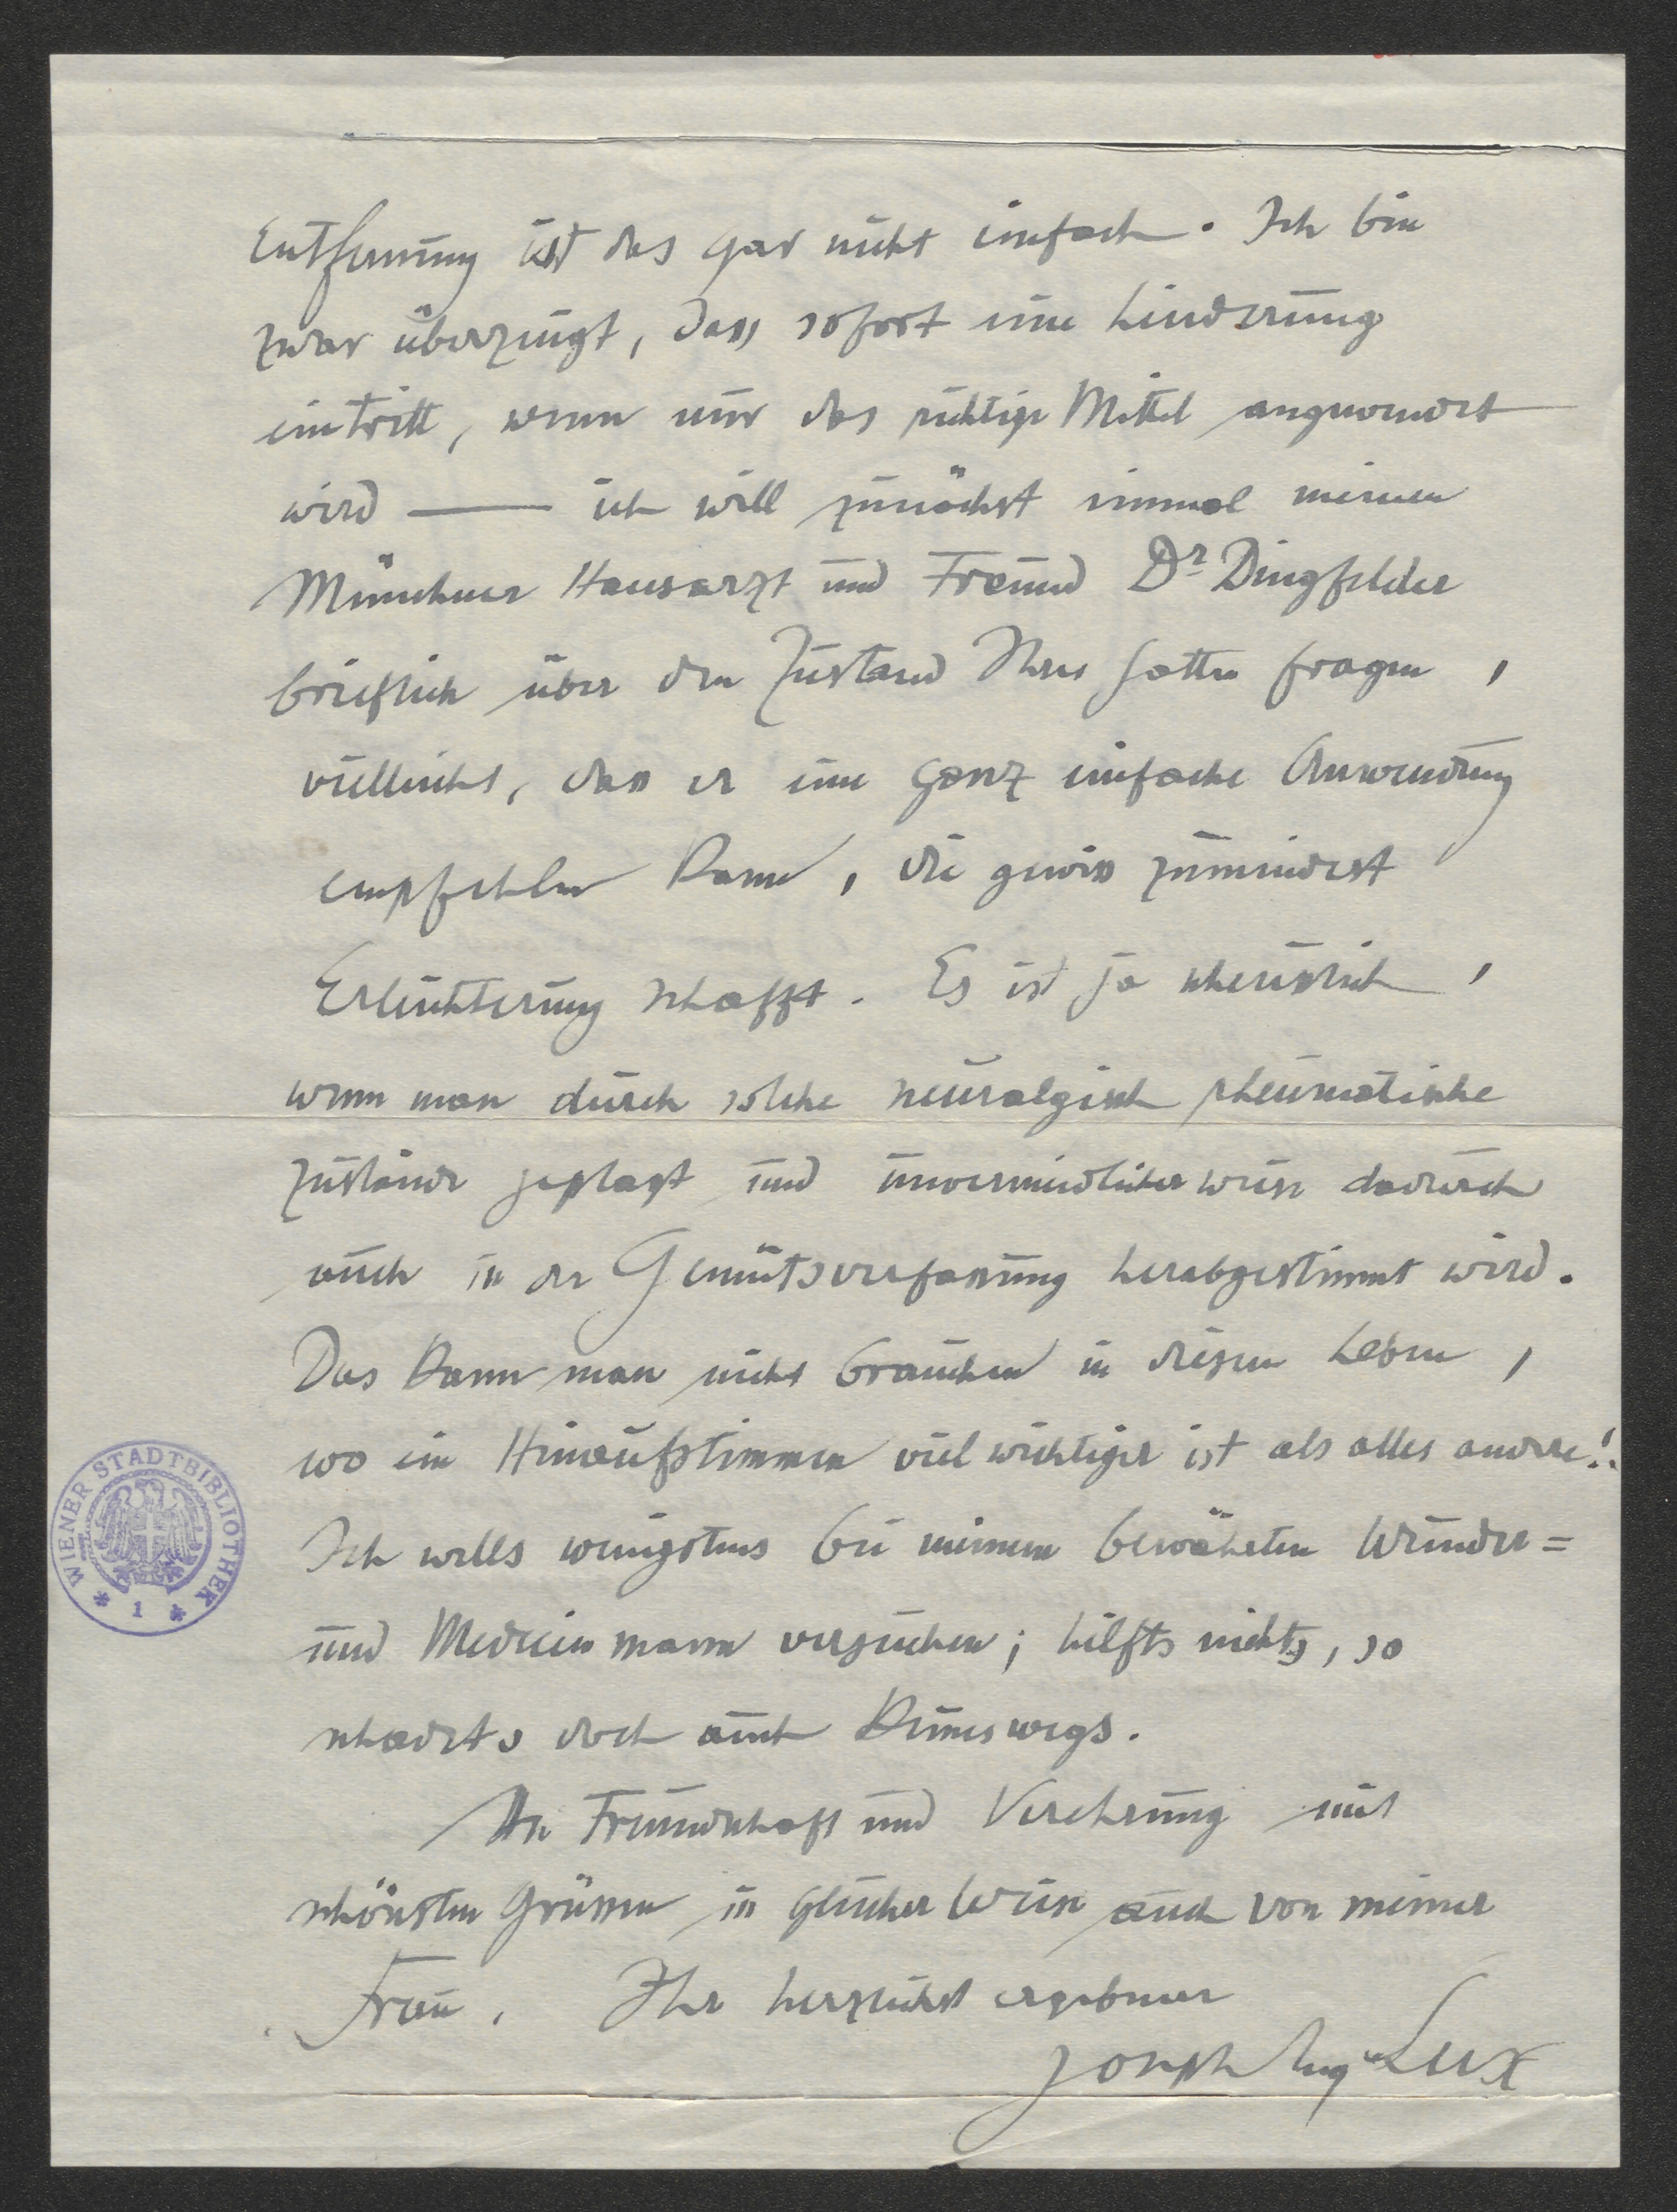 Entfernung ist das gar nicht einfach. Ich bin
zwar überzeugt, dass sofort eine Linderung
eintritt, wenn nur das richtige Mittel angewendet
wird — ich will zunächst einmal meinen
Münchner Hausarzt und Freund Dr Dingfelder
brieflich über den Zustand Ihres Gatten fragen,
vielleicht, dass er eine ganz einfache Anwendung
empfehlen kann, die gewiss zumindest
Erleichterung schafft. Es ist ja scheusslich,
wenn man durch solche neuralgisch rheumatische
Zustände geplagt und unvermeidlicherweise dadurch
auch in der Gemütsverfassung herabgestimmt wird.
Das kann man nicht brauchen in diesem Leben,
wo ein Hinaufstimmen viel wichtiger ist als alles andere!
Ich wills wenigstens bei meinem bewährten Wunder=
und Medicinmann versuchen; hilfts nichts, so
schadet's doch auch keineswegs.
In Freundschaft und Verehrung mit
schönsten Grüssen in gleicher Weise auch von meiner
Frau. Ihr herzlichst ergebener
Joseph Aug Lux
WIENER STADTBIBLIOTHEK
* 1 *